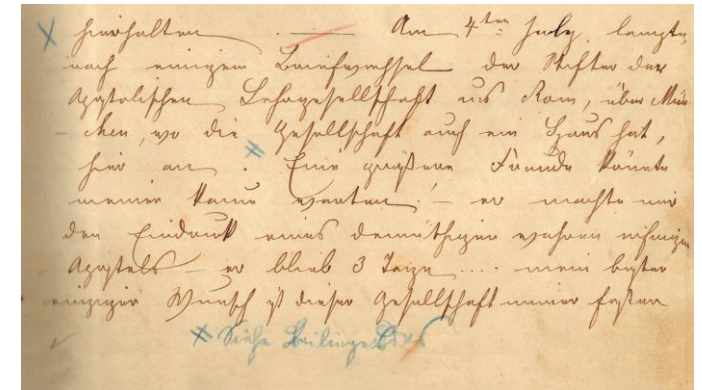 hierhalten. — Am 4ten July langte,
nach einigem Briefwechsel der Stifter der
Apostolischen Lehrgesellschaft aus Rom, über Mün-
chen, wo die Gesellschaft auch ein Haus hat,
hier an. Eine größere Freude könnte
meiner kaum warten! – er machte mir
den Eindruck eines demüthigen wahren eifrigen
Apostels – er blieb 3 Tage .... mein
einziger Wunsch ist dieser Gesellschaft meine
Siehe Beilage